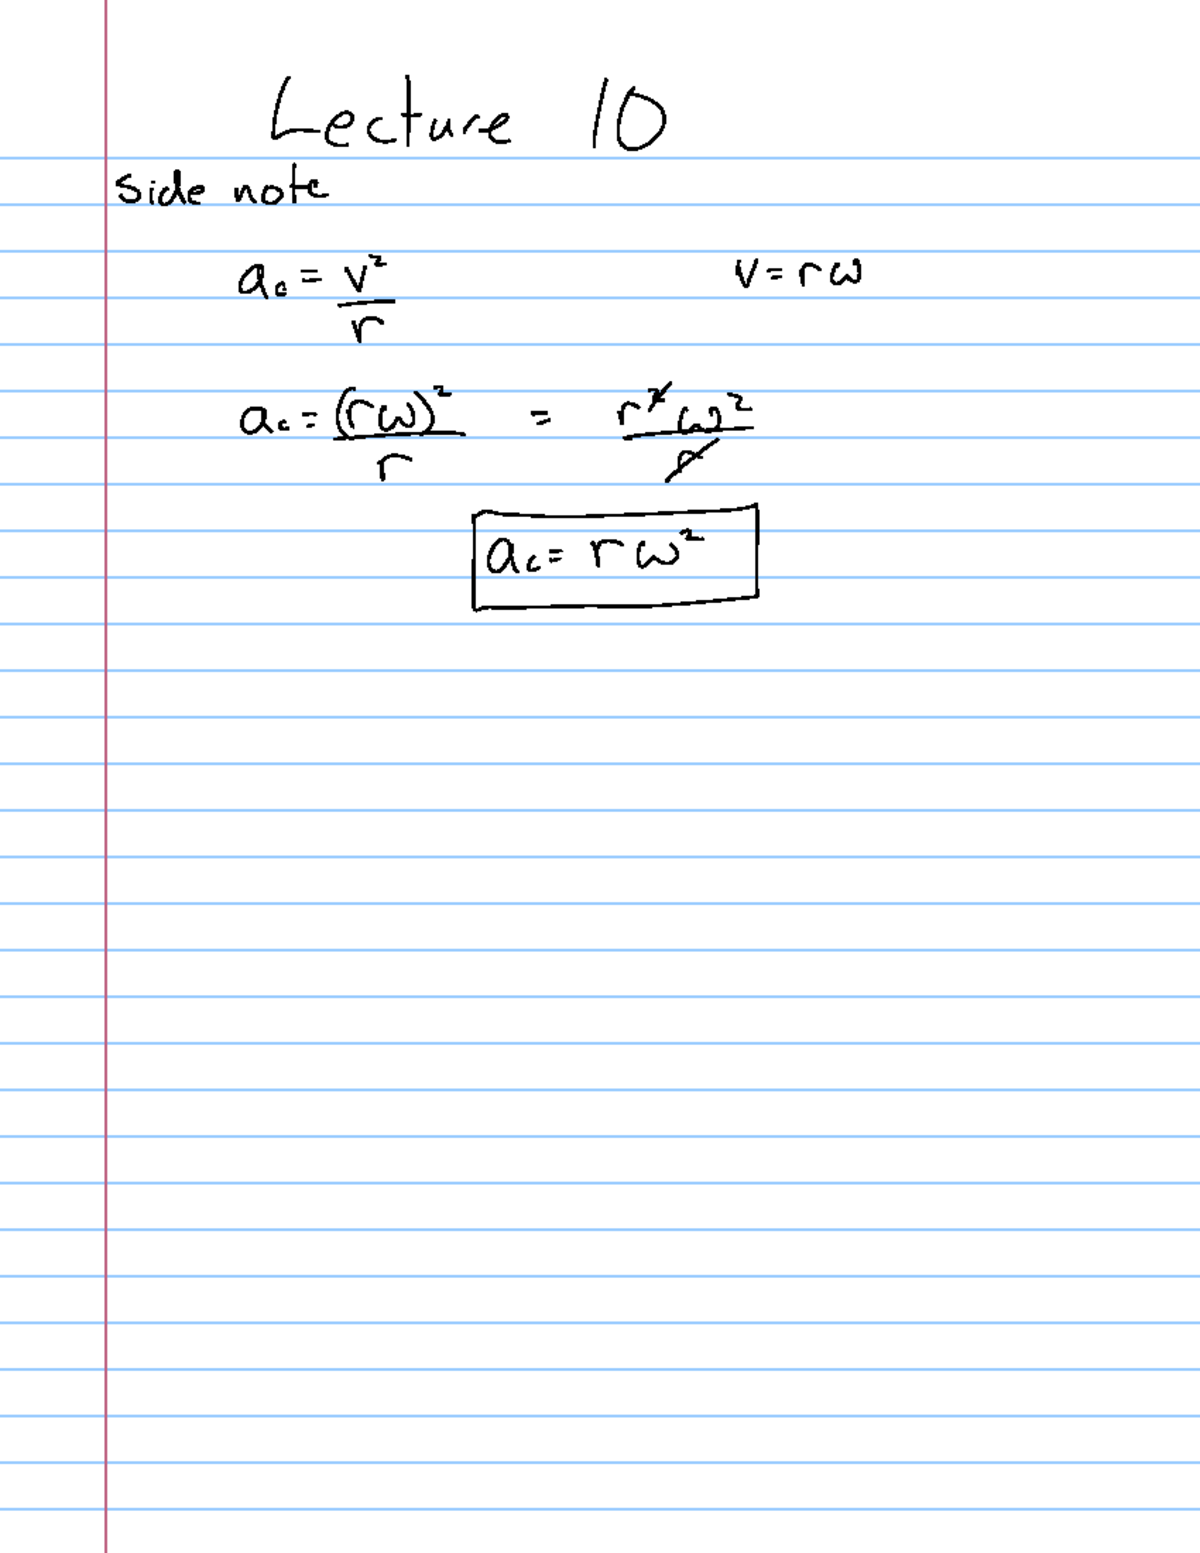 Lecture 10
side note
a_c = v²/r        v = rω
a_c = (rω)²/r = r²ω²/r
a_c = rω²